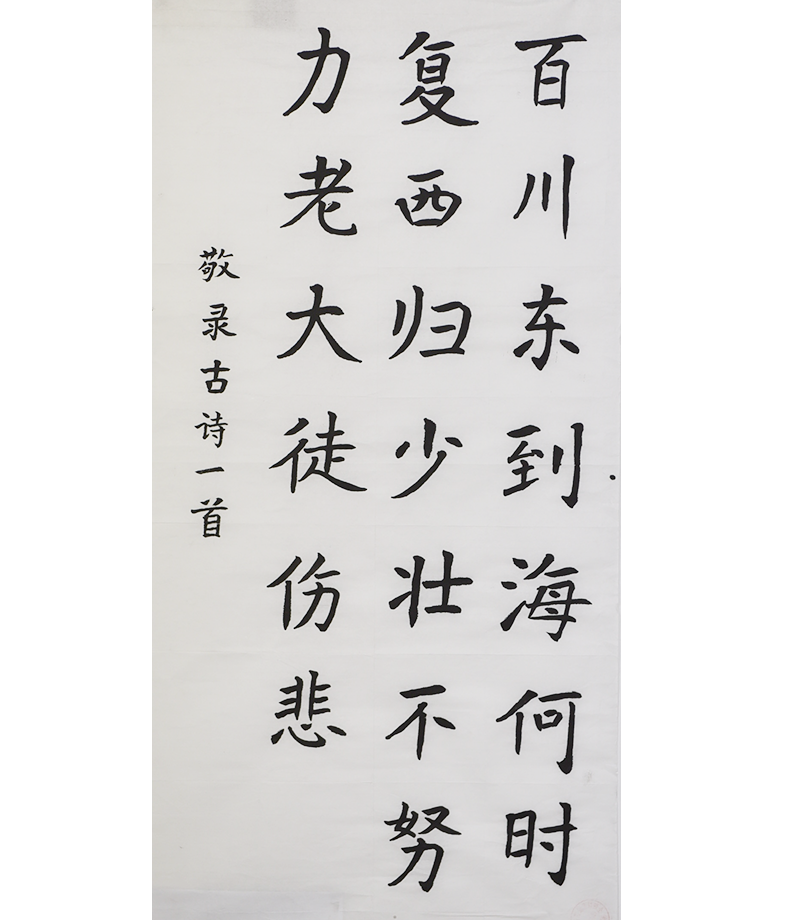 百川东到海何时
复西归少壮不努
力老大徒伤悲
敬录古诗一首